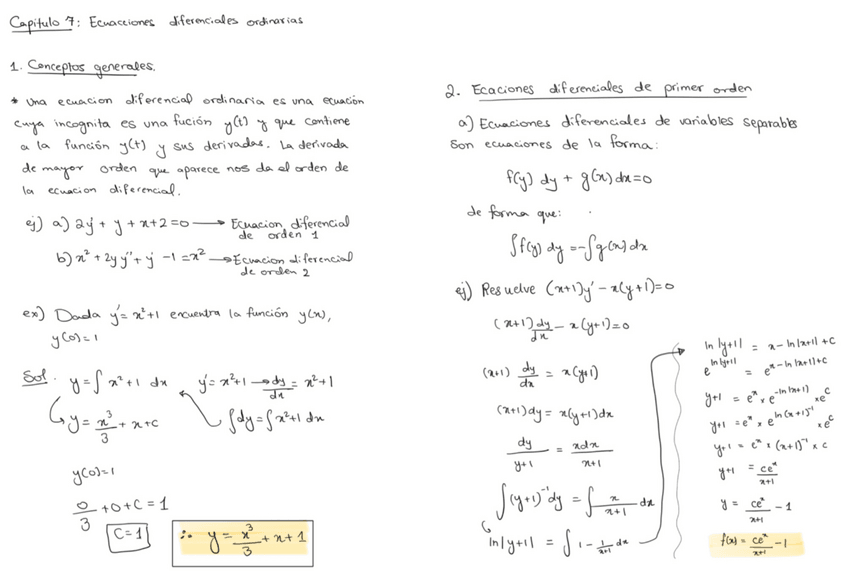 Capitulo 7: Ecuacciones diferenciales ordinarias
1. Conceptos generales.
* Una ecuacion diferencial ordinaria es una ecuación
cuya incognita es una fución y(t) y que contiene
a la función y(t) y sus derivadas. La derivada
de mayor orden que aparece nos da el orden de
la ecuacion diferencial.
ej) a) 2y' + y + x+2=0 → Ecuacion diferencial
de orden 1
b) x² + 2y y'' + y' -1 = x² → Ecuacion diferencial
de orden 2
ex) Dada y' = x²+1 encuentra la función y(x),
y(0)=1
Sol. y = ∫ x²+1 dx y' = x²+1 → dy/dx = x²+1
y = x³/3 + x + c ∫dy = ∫x²+1 dx
y(0)=1
0/3 + 0 + C = 1
C=1
∴ y = x³/3 + x + 1
2. Ecaciones diferenciales de primer orden
a) Ecuaciones diferenciales de variables separables
Son ecuaciones de la forma:
f(y) dy + g(x) dx = 0
de forma que:
∫f(y) dy = -∫g(x) dx
ej) Resuelve (x+1)y' - x(y+1)=0
(x+1) dy/dx - x(y+1)=0
(x+1) dy/dx = x(y+1)
(x+1)dy = x(y+1)dx
dy/y+1 = xdx/x+1
∫(y+1)⁻¹dy = ∫ x/x+1 dx
ln|y+1| = ∫ 1 - 1/x+1 dx
ln|y+1| = x - ln|x+1| + C
e^ln|y+1| = e^x-ln|x+1|+C
y+1 = e^x × e^-ln|x+1| × e^C
y+1 = e^x × e^ln(x+1)⁻¹ × e^C
y+1 = e^x × (x+1)⁻¹ × c
y+1 = ce^x/x+1
y = ce^x/x+1 - 1
f(x) = ce^x/x+1 - 1